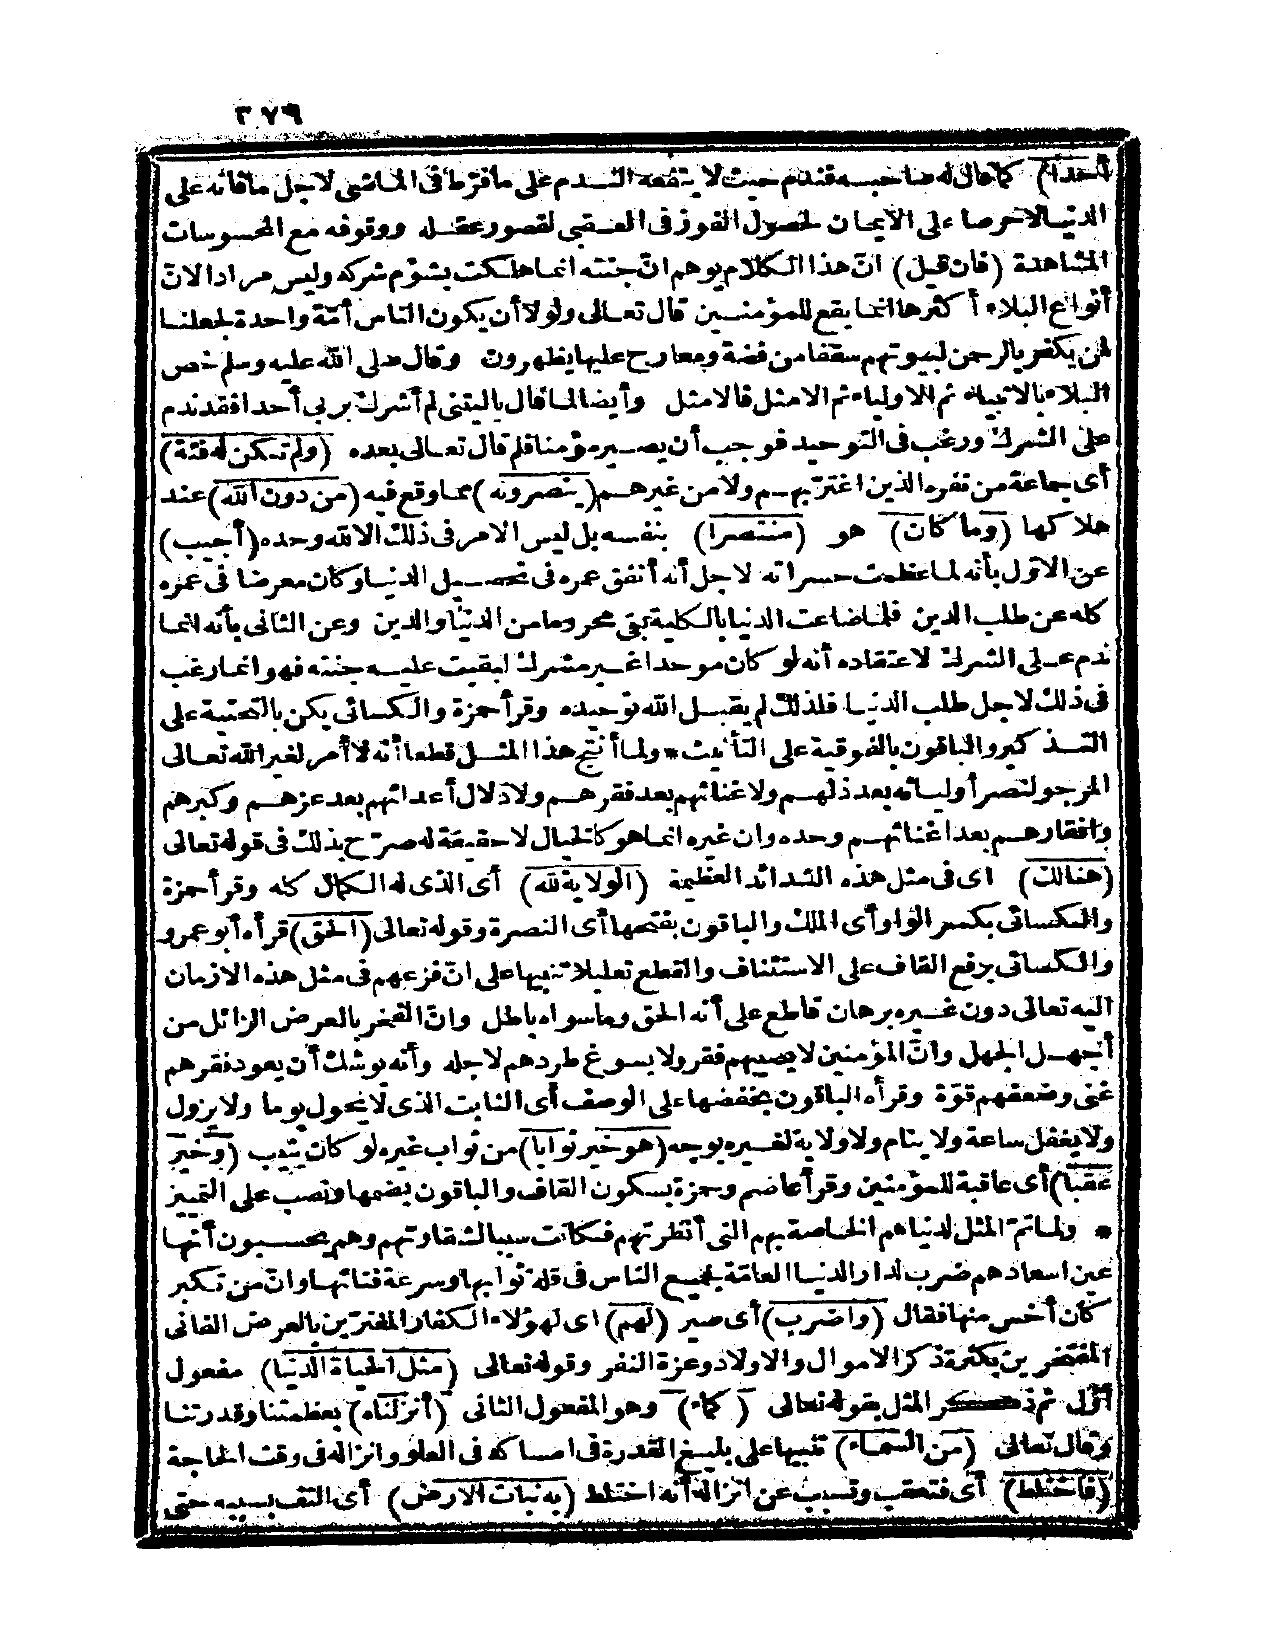 ٣٧٩
أحدا) كما قال له صاحبه فندم حيث لا ينفعه الندم على ما فرط فى الماضى لاجل ما فاته على
الدنيا لا حرصا على الايمان لحصول الفوز فى العقبى لقصور عقله ووقوفه مع المحسوسات
المشاهدة (فان قيل) انّ هذا الكلام يوهم انّ جنته انما هلكت بشؤم شركه وليس مرادا لانّ
أنواع البلاء أكثرها انما يقع للمؤمنين قال تعالى ولولا أن يكون الناس أمّة واحدة لجعلنا
لمن يكفر بالرحمن لبيوتهم سقفا من فضة ومعارج عليها يظهرون وقال صلى الله عليه وسلم خص
البلاء بالانبياء ثم الاولياء ثم الامثل فالامثل وأيضا لما قال ياليتنى لم أشرك بربى أحدا فقد ندم
على الشرك ورغب فى التوحيد فوجب أن يصير مؤمنا فلم قال تعالى بعده (ولم تكن له فئة)
أى جماعة من نفره الذين اغترّ بهم ولا من غيرهم (ينصرونه) مما وقع فيه (من دون الله) عند
هلاكها (وما كان) هو (منتصرا) بنفسه بل ليس الامر فى ذلك الا لله وحده (أجيب)
عن الاوّل بأنه لما عظمت حسراته لاجل أنه أنفق عمره فى تحصيل الدنيا وكان معرضا فى عمره
كله عن طلب الدين فلما ضاعت الدنيا بالكلية بقى محروما من الدنيا والدين وعن الثانى بأنه انما
ندم على الشرك لاعتقاده أنه لو كان موحدا غير مشرك لبقيت عليه جنته فهو انما رغب
فى ذلك لاجل طلب الدنيا فلذلك لم يقبل الله توحيده وقرأ حمزة والكسائى يكن بالتحتية على
التذكير والباقون بالفوقية على التأنيث * ولما أنتج هذا المثل قطعا أنه لا أمر لغير الله تعالى
المرجو لنصر أوليائه بعد ذلهم ولاغنائهم بعد فقرهم ولاذلال أعدائهم بعد عزهم وكبرهم
وافقارهم بعد اغنائهم وحده وان غيره انما هو كالخيال لا حقيقة له صرّح بذلك فى قوله تعالى
(هنالك) اى فى مثل هذه الشدائد العظيمة (الولاية لله) أى الذى له الكمال كله وقرأ حمزة
والكسائى بكسر الواو أى الملك والباقون بفتحها أى النصرة وقوله تعالى (الحق) قرأه أبو عمرو
والكسائى برفع القاف على الاستئناف والقطع تعليلا تنبيها على انّ فزعهم فى مثل هذه الازمان
اليه تعالى دون غيره برهان قاطع على أنه الحق وما سواه باطل وانّ الفخر بالعرض الزائل من
أجهل الجهل وانّ المؤمنين لا يصيبهم فقر ولا يسوغ طردهم لاجله وأنه يوشك أن يعود فقرهم
غنى وضعفهم قوّة وقرأه الباقون بخفضها على الوصف أى الثابت الذى لا يحول يوما ولا يزول
ولا يغفل ساعة ولا ينام ولا ولاية لغيره بوجه (هو خير ثوابا) من ثواب غيره لو كان يثيب (وخير
عقبا) أى عاقبة للمؤمنين وقرأ عاصم وحمزة بسكون القاف والباقون بضمها ونصب على التمييز
* ولما تمّ المثل لدنياهم الخاصة بهم التى أبطرتهم فكانت سببا لشقاوتهم وهم يحسبون أنها
عين اسعادهم ضرب لدار الدنيا العامّة لجميع الناس فى قلة ثوابها وسرعة فنائها وانّ من تكبر
كان أخس منها فقال (واضرب) أى صير (لهم) اى لهؤلاء الكفار المغترين بالعرض الفانى
المفتخرين بكثرة ذكر الاموال والاولاد وعزة النفر وقوله تعالى (مثل الحياة الدنيا) مفعول
أوّل ثم ذكر المثل بقوله تعالى (كماء) وهو المفعول الثانى (أنزلناه) بعظمتنا وقدرتنا
وقال تعالى (من السماء) تنبيها على بليغ القدرة فى امساكه فى العلو وانزاله فى وقت الحاجة
(فاختلط) أى فتعقب وتسبب عن انزاله أنه اختلط (به نبات الارض) أى التف بسببه حتى